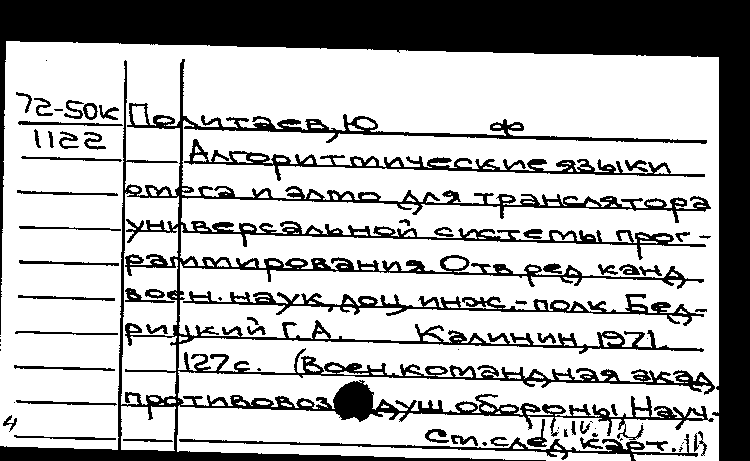 72-50к Политаев, Ю ф
1122
Алгоритмические языки
омега и элто для транслятора
универсальной системы прог-
раммирования. Отв. ред. канд.
воен. наук, доц. инж.-полк. Бед-
рицкий Г. А. Калинин, 1971.
127 с. (Воен. командная акад.
противовоз душ. обороны. Науч.-
4 См. след. карт.